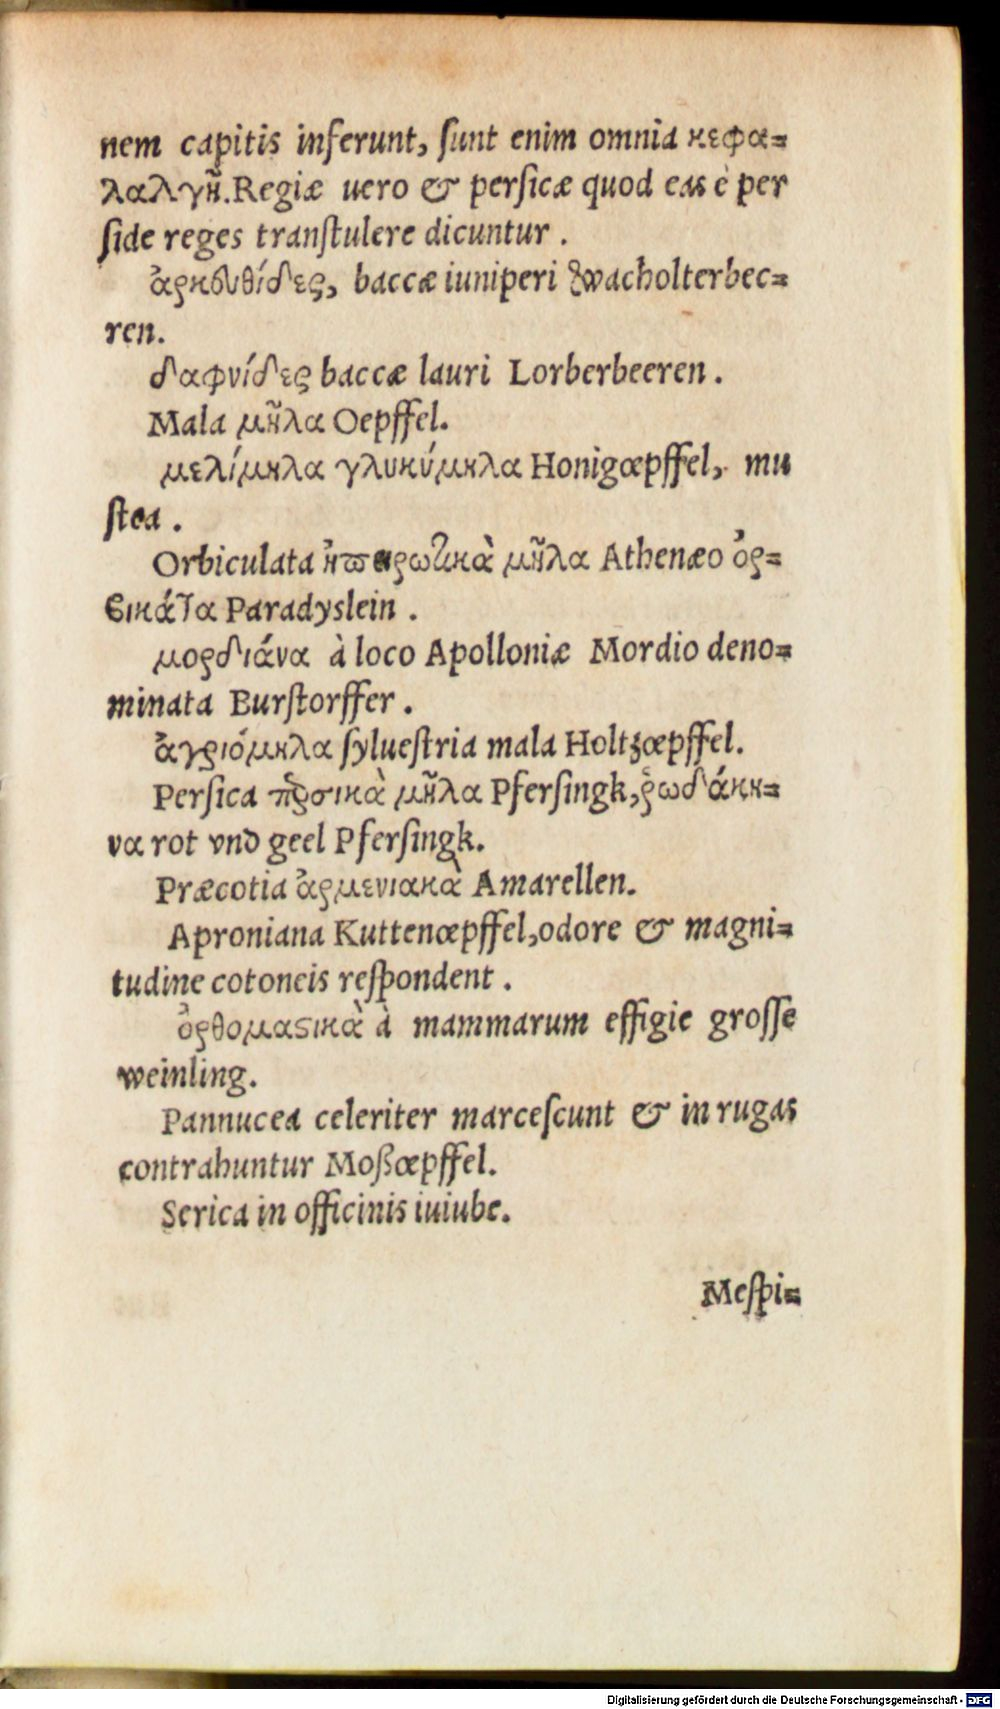 nem capitis inferunt, ſunt enim omnia κεφα=
λαλγῆ. Regiæ uero & perſicæ quod eas è per
ſide reges tranſtulere dicuntur.
ἀρκουθίδες, baccæ iuniperi wacholterbec=
ren.
δαφνίδες baccæ lauri Lorberbeeren.
Mala μῆλα Oepffel.
μελίμηλα γλυκύμηλα Honigœpffel, mu
ſtea.
Orbiculata ἠπειρωτικὰ μῆλα Athenæo ὀρ=
βικάτα Paradyslein.
μορδιάνα à loco Apolloniæ Mordio deno=
minata Burſtorffer.
ἀγριόμηλα ſylueſtria mala Holtzœpffel.
Perſica πϱσικὰ μῆλα Pferſingk, ῥωδάκη=
να rot vnd geel Pferſingk.
Præcotia ἀρμενιακὰ Amarellen.
Aproniana Kuttenœpffel, odore & magni=
tudine cotoneis reſpondent.
ὀρθομαϛικὰ à mammarum effigie groſſe
weinling.
Pannucea celeriter marceſcunt & in rugas
contrahuntur Moßœpffel.
Serica in officinis iuiube.
Meſpi=
Digitalisierung gefördert durch die Deutsche Forschungsgemeinschaft - DFG